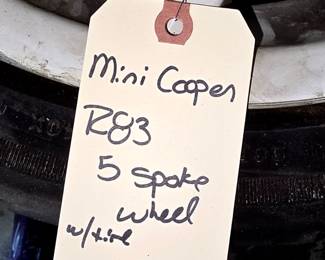 Mini Cooper
R83
5 spoke
wheel
w/tire